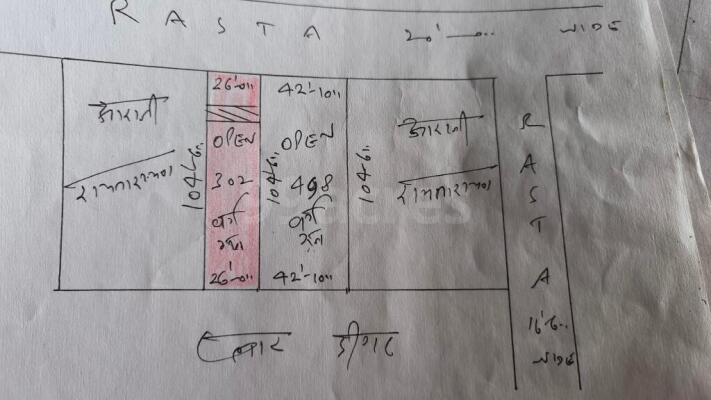 RASTA 20'-0" WIDE
26'-0"
42'-10"
आराजी
OPEN
OPEN
आराजी
रामनारायण
104'-6"
302
104'-6"
498
104'-6"
रामनारायण
वर्ग
गज
वर्ग
गज
26'-0"
42'-10"
RASTA
16'-6"
WIDE
99acres